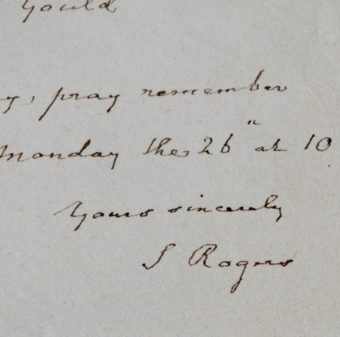 Gould
pray remember
Monday the 26" at 10
Yours sincerely
S Rogers